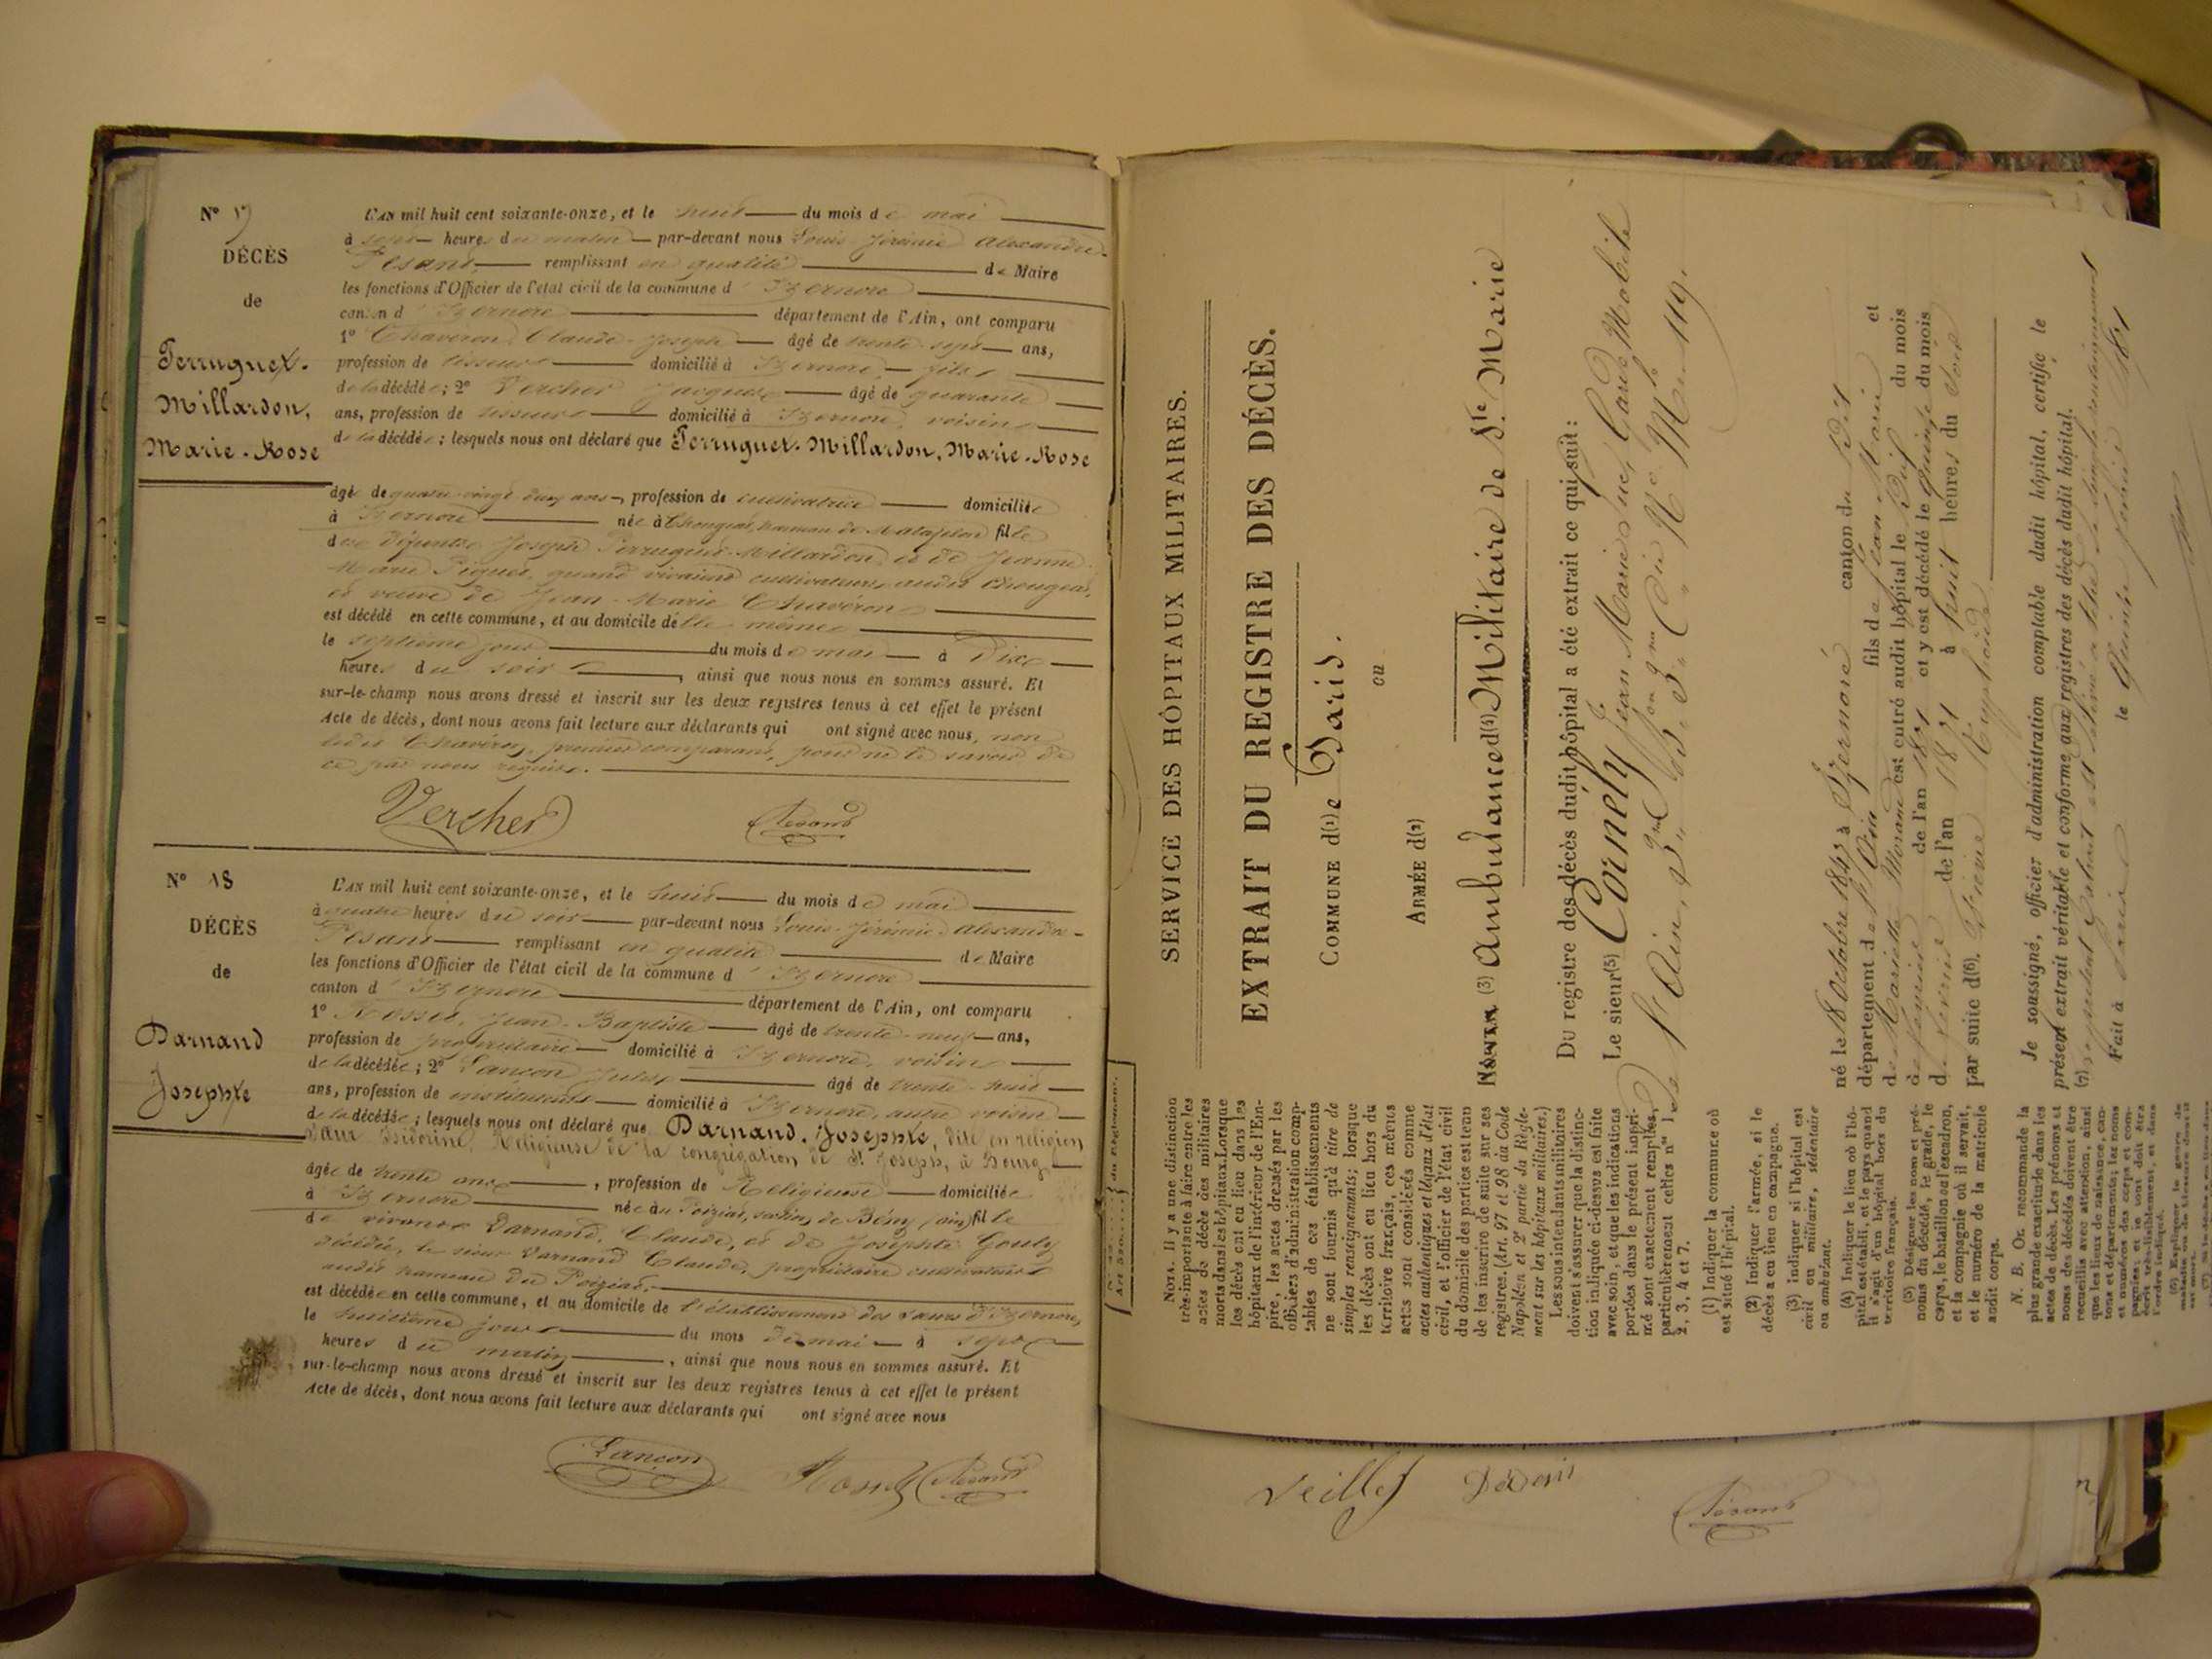 N° 17
DÉCÈS
de
Perruguet-
Millardon,
Marie-Rose
L'AN mil huit cent soixante-onze, et le huit du mois de mai
à sept heures du matin par-devant nous Louis Jérémie Alexandre
Pesant, remplissant en qualité de Maire
les fonctions d'Officier de l'état civil de la commune d'Izernore
canton d'Izernore département de l'Ain, ont comparu
1° Chavéron, Claude-Joseph âgé de trente-sept ans,
profession de tisseur domicilié à Izernore, fils
de la décédée; 2° Vercher Jacques âgé de quarante
ans, profession de tisseur domicilié à Izernore, voisin
de la décédée; lesquels nous ont déclaré que Perruguet-Millardon, Marie-Rose
âgée de quatre-vingt deux ans, profession de cultivatrice domiciliée
à Izernore née à Chougeat, hameau de Matafelon fille
des défunts Joseph Perruguet-Millardon et de Jeanne-
Marie Piquet, quand vivaient cultivateurs audit Chougeat,
et veuve de Jean-Marie Chavéron
est décédée en cette commune, et au domicile d'elle-même
le septième jour du mois de mai à Dix
heures du soir, ainsi que nous nous en sommes assuré. Et
sur-le-champ nous avons dressé et inscrit sur les deux registres tenus à cet effet le présent
Acte de décès, dont nous avons fait lecture aux déclarants qui ont signé avec nous, non
ledit Chavéron, premier comparant, pour ne le savoir de
ce par nous requis.
Vercher Pesant
N° 18
DÉCÈS
de
Darnand
Josephte
L'AN mil huit cent soixante-onze, et le huit du mois de mai
à quatre heures du soir par-devant nous Louis-Jérémie Alexandre
Pesant remplissant en qualité de Maire
les fonctions d'Officier de l'état civil de la commune d'Izernore
canton d'Izernore département de l'Ain, ont comparu
1° Rosset, Jean-Baptiste âgé de trente-neuf ans,
profession de propriétaire domicilié à Izernore, voisin
de la décédée; 2° Lançon Jules âgé de trente-huit
ans, profession de instituteur domicilié à Izernore, autre voisin
de la décédée; lesquels nous ont déclaré que Darnand, Josephte, dite en religion
sœur Isidorine, Religieuse de la congrégation de St Joseph, à Bourg,
âgée de trente ans, profession de Religieuse domiciliée
à Izernore née au Poiziat, section de Bény (ain) fille
de vivants Darnand, Claude, et de Josephte Gouly
décédée, le sieur Darnand Claude, propriétaire cultivateur
audit hameau du Poiziat,
est décédée en cette commune, et au domicile de l'établissement des Sœurs d'Izernore,
le huitième jour du mois de mai à sept
heures du matin, ainsi que nous nous en sommes assuré. Et
sur-le-champ nous avons dressé et inscrit sur les deux registres tenus à cet effet le présent
Acte de décès, dont nous avons fait lecture aux déclarants qui ont signé avec nous
Lançon Rosset Pesant
SERVICE DES HÔPITAUX MILITAIRES.
EXTRAIT DU REGISTRE DES DÉCÈS.
COMMUNE d(1)e Paris.
ou
ARMÉE d(2)
(3) Ambulance d(4) Militaire de Ste Marie
Du registre des décès dudit hôpital a été extrait ce qui suit:
Le sieur(5) Cornely Jean Marie Garde Mobile
De l'Ain, 119.
né le 18 Octobre 1843 à Izernore canton du dit
département de l'Ain fils de Jean Marie et
de Mariette Morand est entré audit hôpital le Huit du mois
de Janvier de l'an 1871 et y est décédé le Quinze du mois
de Février de l'an 1871 à huit heures du soir
par suite d(6) Fièvre Typhoïde
Je soussigné, officier d'administration comptable dudit hôpital, certifie le
présent extrait véritable et conforme aux registres des décès dudit hôpital.
(7) Le présent Extrait est délivré à titre de simple renseignement
Fait à Paris le Quinze Février 1871
NOTA. Il y a une distinction
très-importante à faire entre les
actes de décès des militaires
morts dans les hôpitaux. Lorsque
les décès ont eu lieu dans les
hôpitaux de l'intérieur de l'Em-
pire, les actes dressés par les
officiers d'administration comp-
tables de ces établissements
ne sont fournis qu'à titre de
simples renseignements; lorsque
les décès ont eu lieu hors du
territoire français, ces mêmes
actes sont considérés comme
actes authentiques et légaux d'état
civil, et l'officier de l'état civil
du domicile des parties est tenu
de les inscrire de suite sur ses
registres. (Art. 97 et 98 du Code
Napoléon et 2e partie du Règle-
ment sur les hôpitaux militaires.)
Les sous-intendants militaires
doivent s'assurer que la distinc-
tion indiquée ci-dessus est faite
avec soin, et que les indications
portées dans le présent impri-
mé sont exactement remplies,
particulièrement celles nos 1,
2, 3, 4 et 7.
(1) Indiquer la commune où
est situé l'hôpital.
(2) Indiquer l'armée, si le
décès a eu lieu en campagne.
(3) Indiquer si l'hôpital est
civil ou militaire, sédentaire
ou ambulant.
(4) Indiquer le lieu où l'hô-
pital est établi, et le pays quand
il s'agit d'un hôpital hors du
territoire français.
(5) Désigner les nom et pré-
noms du décédé, le grade, le
corps, le bataillon ou l'escadron,
et la compagnie où il servait,
et le numéro de la matricule
audit corps.
N. B. On recommande la
plus grande exactitude dans les
actes de décès. Les prénoms et
noms des décédés doivent être
recueillis avec attention, ainsi
que les lieux de naissance, can-
tons et départements; les noms
et numéros des corps et com-
pagnies; et le tout doit être
écrit très-lisiblement, et dans
l'ordre indiqué.
Veillet Pesant